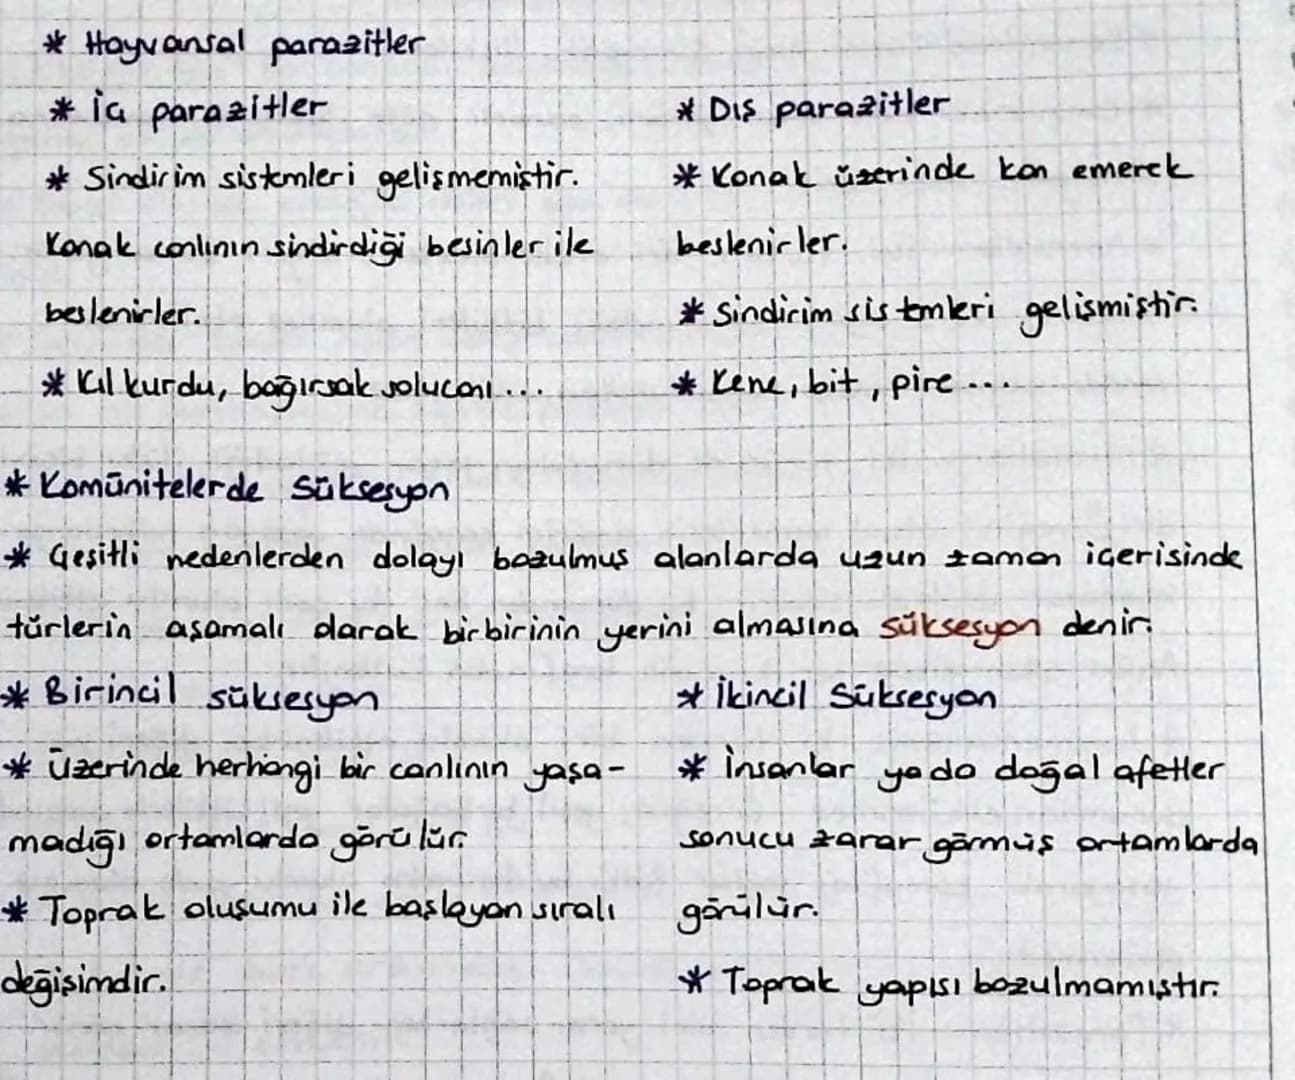 * Hayvansal parazitler
* İç parazitler
* Sindirim sistemleri gelişmemiştir.
Konak canlının sindirdiği besinler ile
beslenirler.
* Kıl kurdu, bağırsak solucanı ...
* Dış parazitler
* Konak üzerinde kan emerek
beslenirler.
* Sindirim sistemleri gelişmiştir.
* Kene, bit, pire ...
* Komünitelerde Süksesyon
* Çeşitli nedenlerden dolayı bozulmuş alanlarda uzun zaman içerisinde
türlerin aşamalı olarak birbirinin yerini almasına süksesyon denir.
* Birincil süksesyon
* Üzerinde herhangi bir canlının yaşa-
madığı ortamlarda görülür.
* Toprak oluşumu ile başlayan sıralı
değişimdir.
* İkincil Süksesyon
* İnsanlar yada doğal afetler
sonucu zarar görmüş ortamlarda
görülür.
* Toprak yapısı bozulmamıştır.